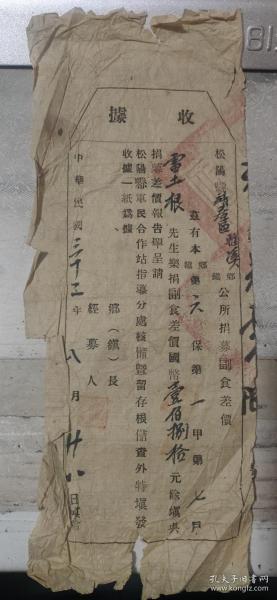 收據
松陽縣 鄉鎮公所捐募副食差價
茲有本鄉鎮第六保第一甲第七戶
雷土根先生樂捐副食差價國幣壹佰捌拾元除填具
捐募差價報告單呈請
松陽縣軍民合作站指導分處核備暨留存根備查外特填發
收據一紙爲據
鄉(鎮)長
經募人
中華民國三十二年八月廿八日
孔夫子旧书网